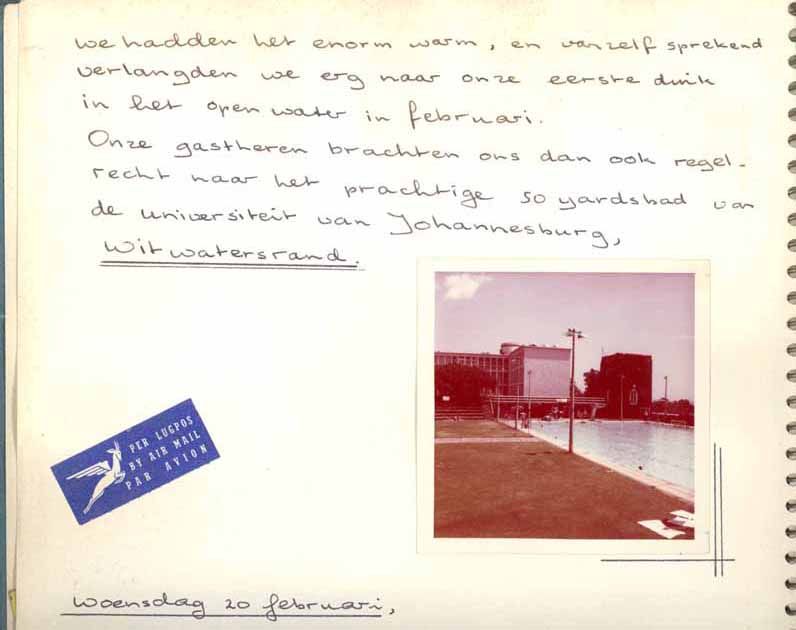 we hadden het enorm warm, en vanzelf sprekend
verlangden we erg naar onze eerste duik
in het open water in februari.
Onze gastheren brachten ons dan ook regel-
recht naar het prachtige 50 yardsbad van
de universiteit van Johannesburg,
Witwatersrand.
PER LUGPOS
BY AIR MAIL
PAR AVION
Woensdag 20 februari,